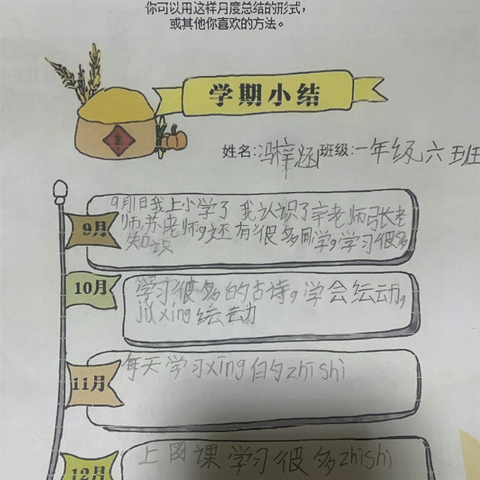 你可以用这样月度总结的形式，
或其他你喜欢的方法。
学期小结
姓名：冯梓涵班级：一年级六班
9月
9月1日我上小学了 我认识了辛老师张老
师苏老师，还有很多同学，学习很多
知识
10月
学习很多的古诗。学会绘动，
ju xing 绘动
11月
每天学习xing的zhishi
12月
上网课学习很多zhishi